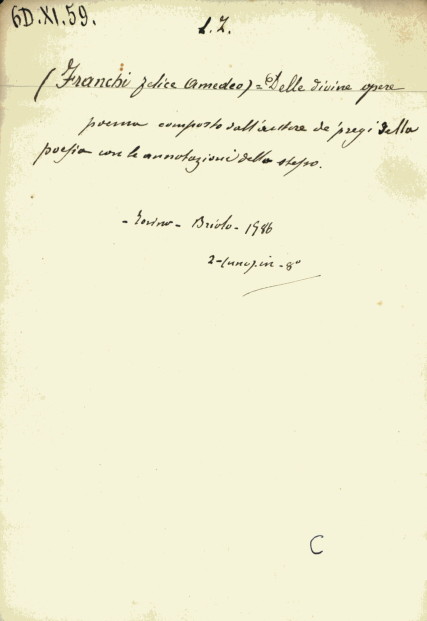 6D.XI.59.
(Franchi felice Amedeo) = Delle divine opere
poema composto dall'autore de' pregi della
poesia con le annotazioni dello stesso.
- Torino - Briolo - 1786
in - 8°
C